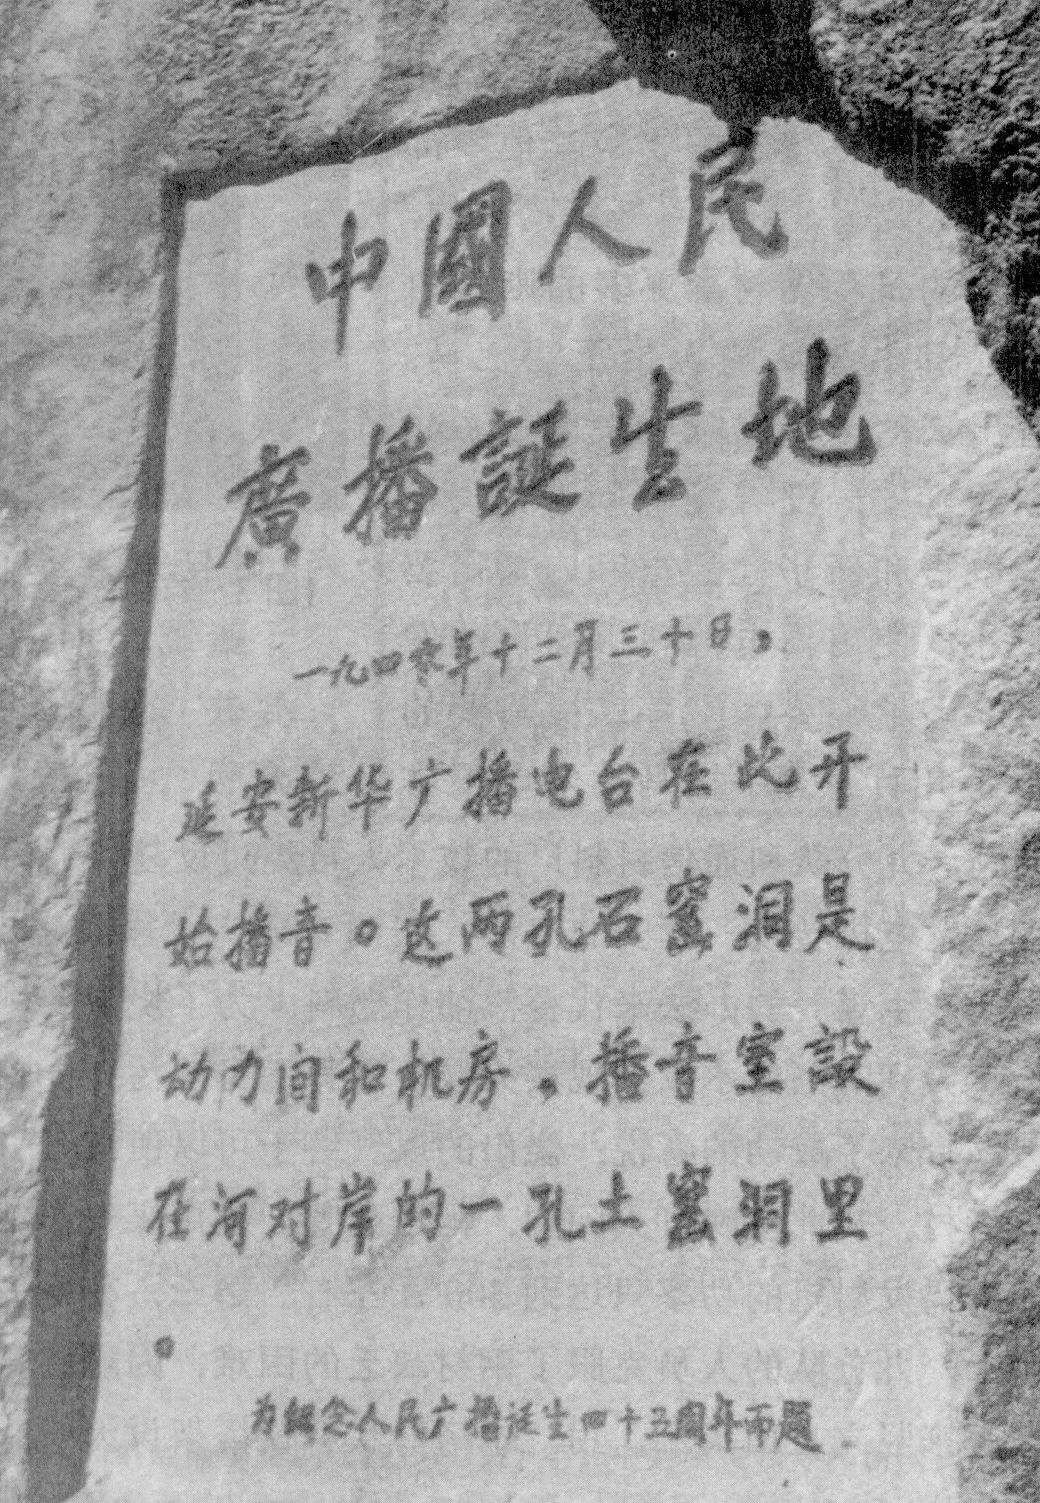 中國人民
廣播誕生地
一九四零年十二月三十日，
延安新华广播电台在此开
始播音。这两孔石窑洞是
动力间和机房，播音室設
在河对岸的一孔土窑洞里
。
为纪念人民广播诞生四十五周年而题